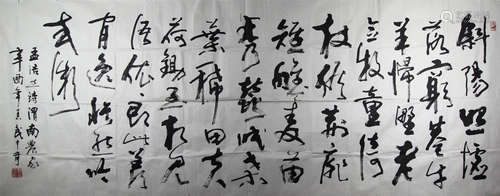 斜陽照墟
落窮巷牛
羊歸野老
念牧童倚
杖候荊扉
雉雊麥苗
秀蠶眠桑
葉稀田夫
荷鋤至相見
語依依即此羨
閒逸悵然吟
式微
孟浩然诗渭南農家
辛酉年武中奇